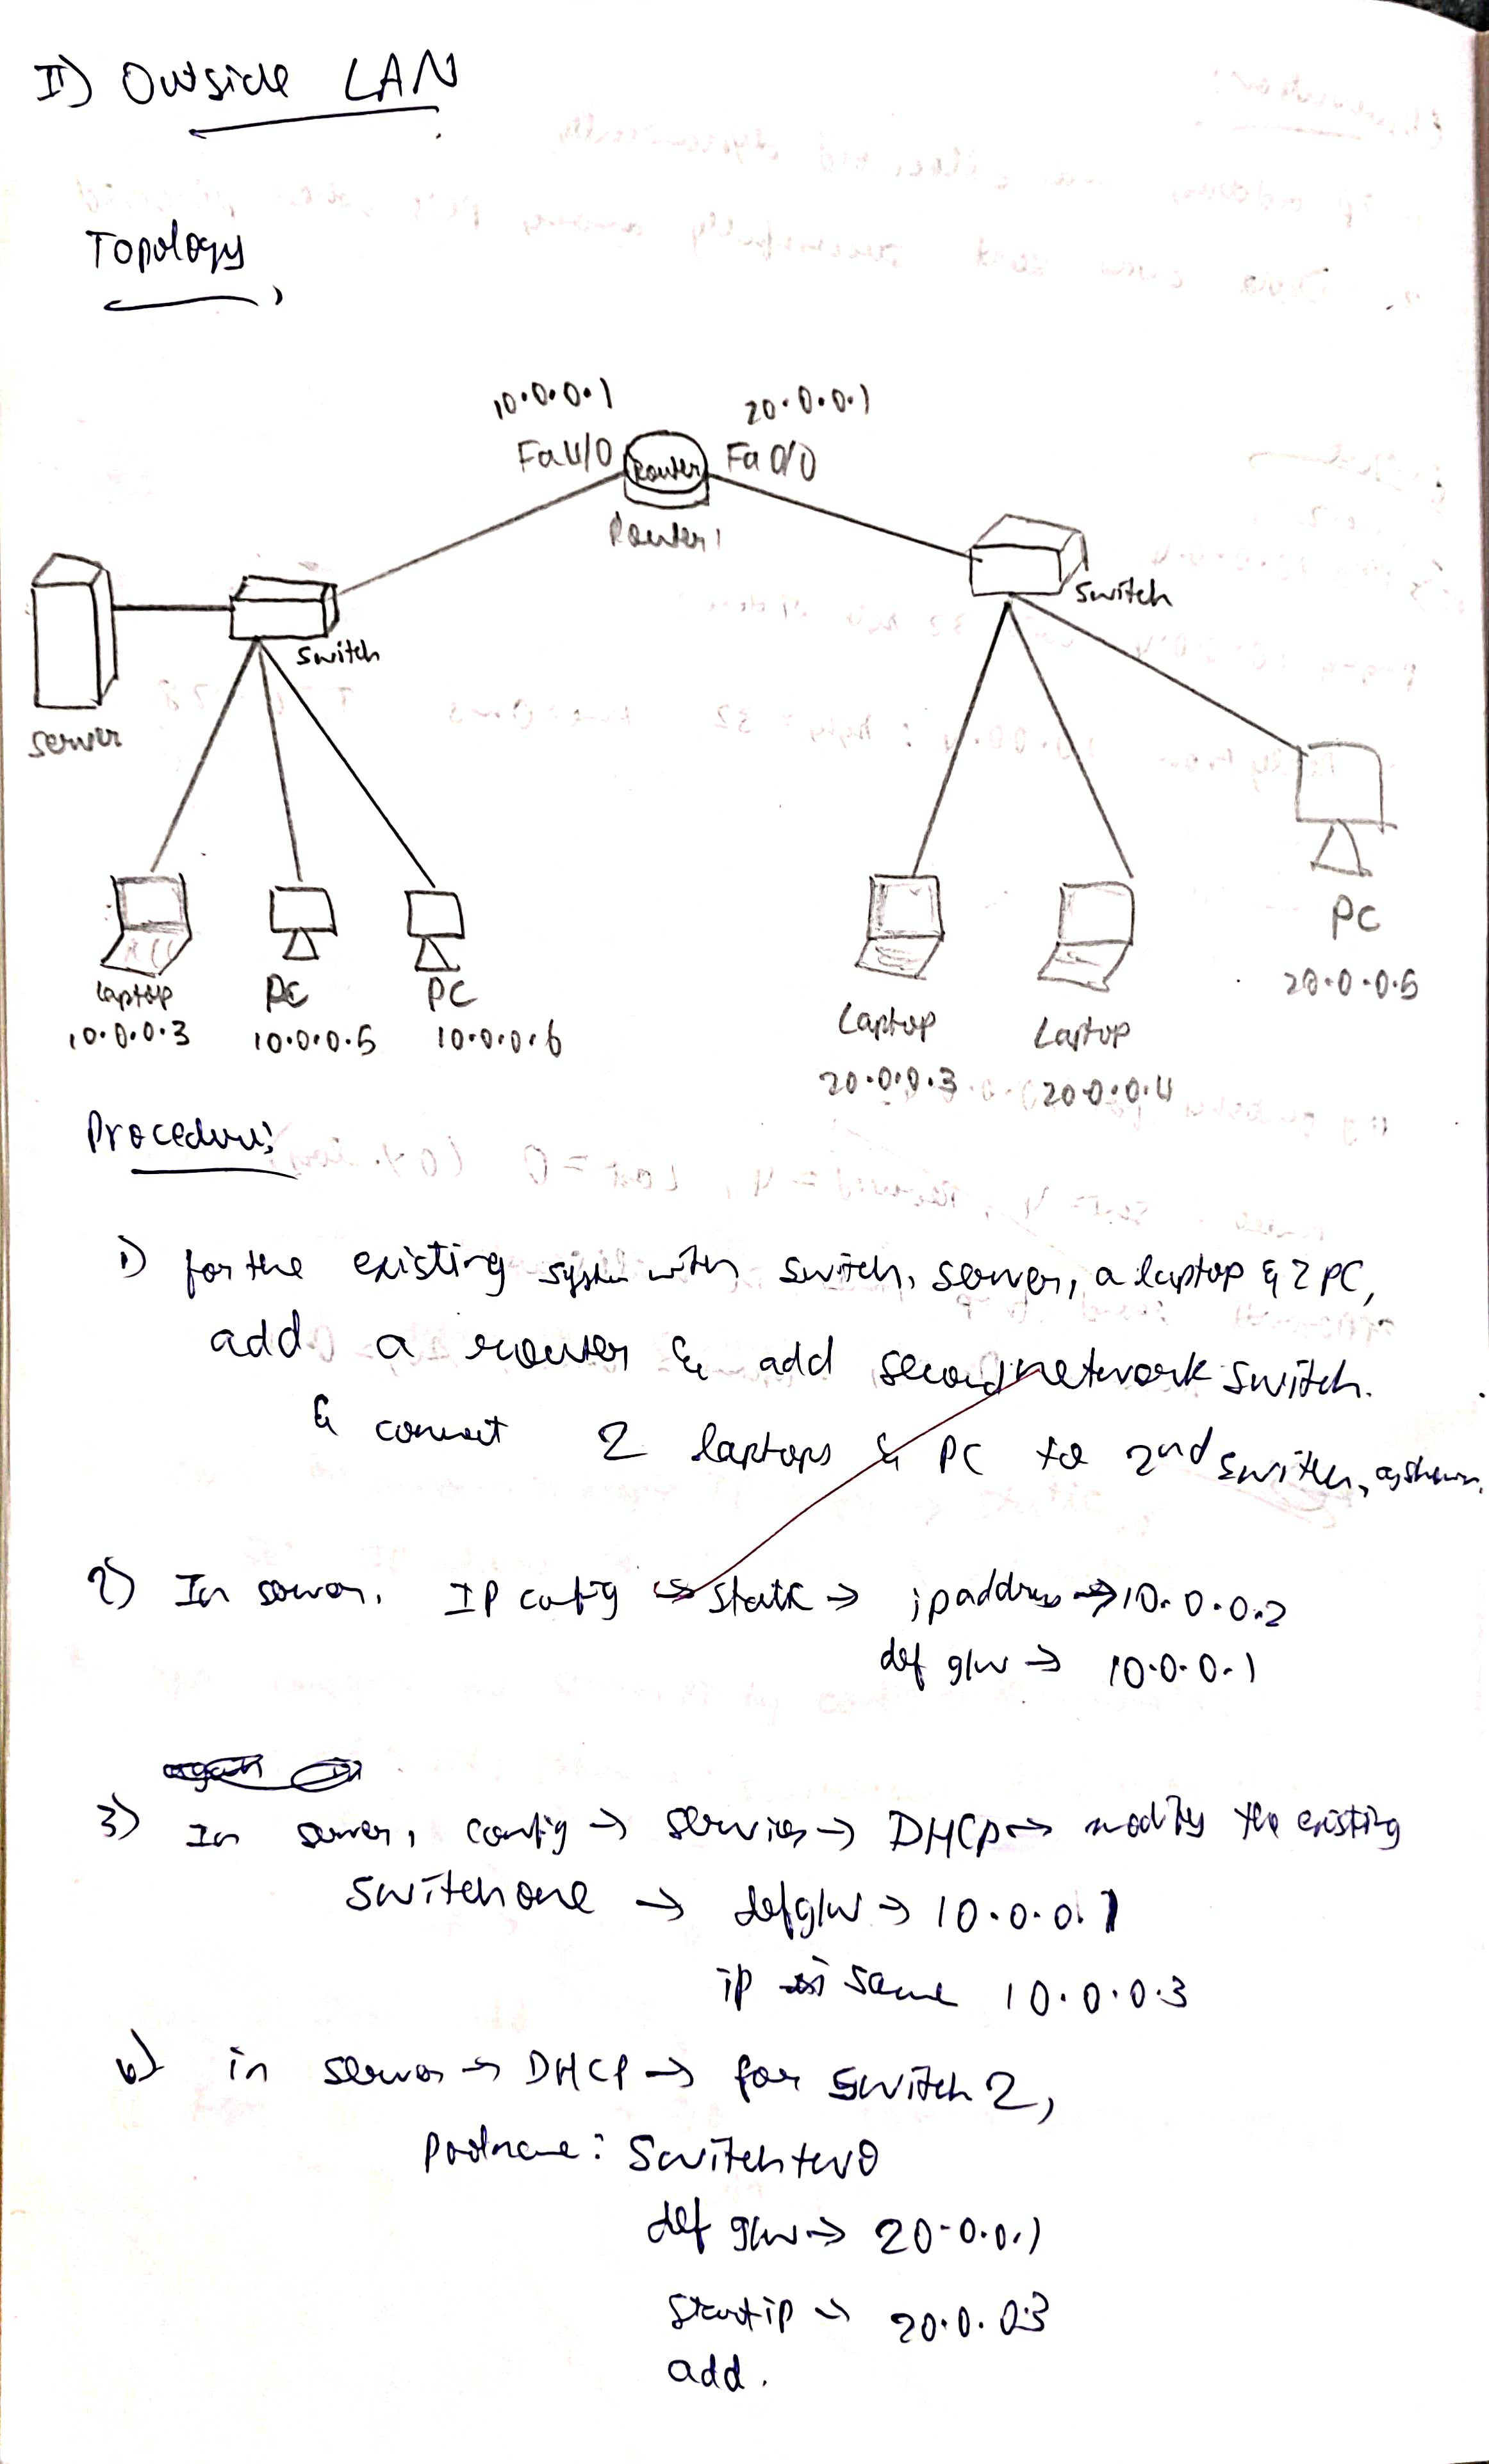 II) Outside LAN
Topology
10.0.0.1 20.0.0.1
Fa4/0 Router Fa0/0
Router1
Switch
Switch
Server
PC
20.0.0.5
Laptop PC PC
10.0.0.3 10.0.0.5 10.0.0.6
Laptop Laptop
20.0.0.3 20.0.0.4
Procedure:
1) for the existing system with switch, server, a laptop & 2 PC,
add a router & add second network switch.
& connect 2 laptops & PC to 2nd switch, as shown.
2) In server, IP config → static → ip address → 10.0.0.2
def g/w → 10.0.0.1
3) In server, config → services → DHCP → modify the existing
switchone → def g/w → 10.0.0.1
ip same 10.0.0.3
4) in server → DHCP → for switch 2,
Poolname: Switchtwo
def g/w → 20.0.0.1
start ip → 20.0.0.3
add.